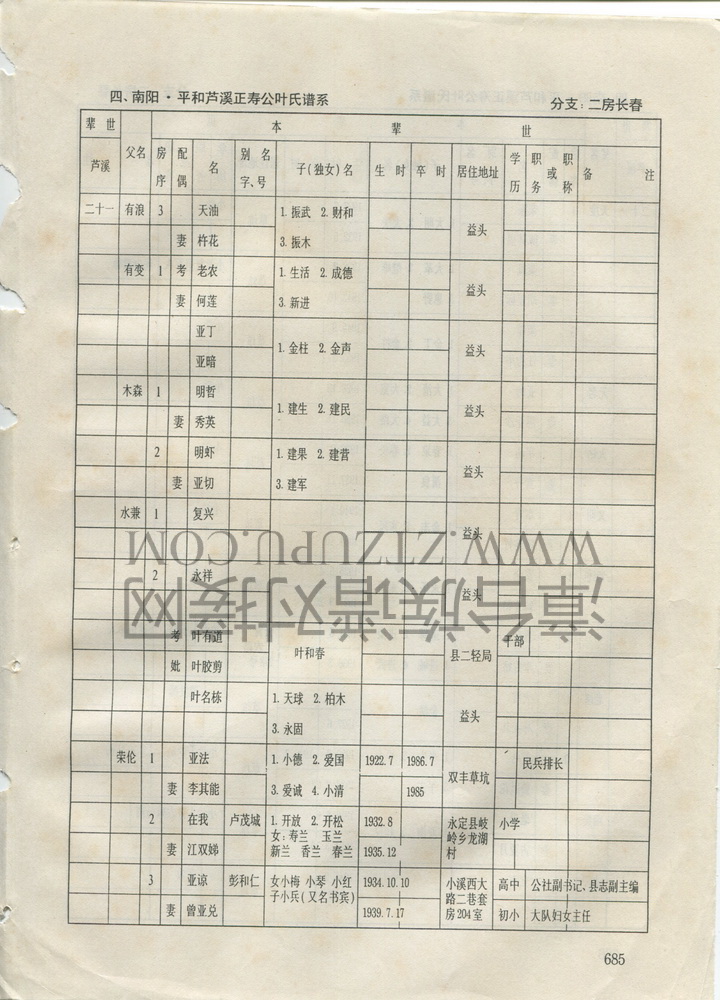 四、南阳·平和芦溪正寿公叶氏谱系 分支：二房长春
辈世 本辈世
芦溪 父名 房序 配偶 名 别名字、号 子(独女)名 生时 卒时 居住地址 学历 职务或职称 备注
二十一 有浪 3 天油 1.振武 2.财和 益头
妻 杵花 3.振木
有变 1 考 老农 1.生活 2.成德 益头
妻 何莲 3.新进
亚丁 1.金柱 2.金声 益头
亚暗
木森 1 明哲 1.建生 2.建民 益头
妻 秀英
2 明虾 1.建果 2.建营 益头
妻 亚切 3.建军
水兼 1 复兴 益头
2 永祥 益头
考 叶有道 叶和春 县二轻局 干部
妣 叶胶剪
叶名栋 1.天球 2.柏木 益头
3.永固
荣伦 1 亚法 1.小德 2.爱国 1922.7 1986.7 双丰草坑 民兵排长
妻 李其能 3.爱诚 4.小清 1985
2 在我 卢茂城 1.开放 2.开松 1932.8 永定县岐岭乡龙湖村 小学
女：寿兰 玉兰
妻 江双娣 新兰 香兰 春兰 1935.12
3 亚谅 彭和仁 女小梅 小琴 小红 1934.10.10 小溪西大路二巷套房204室 高中 公社副书记、县志副主编
子小兵(又名书宾)
妻 曾亚兑 1939.7.17 初小 大队妇女主任
685
WWW.ZTZUPU.COM
漳台族谱对接网